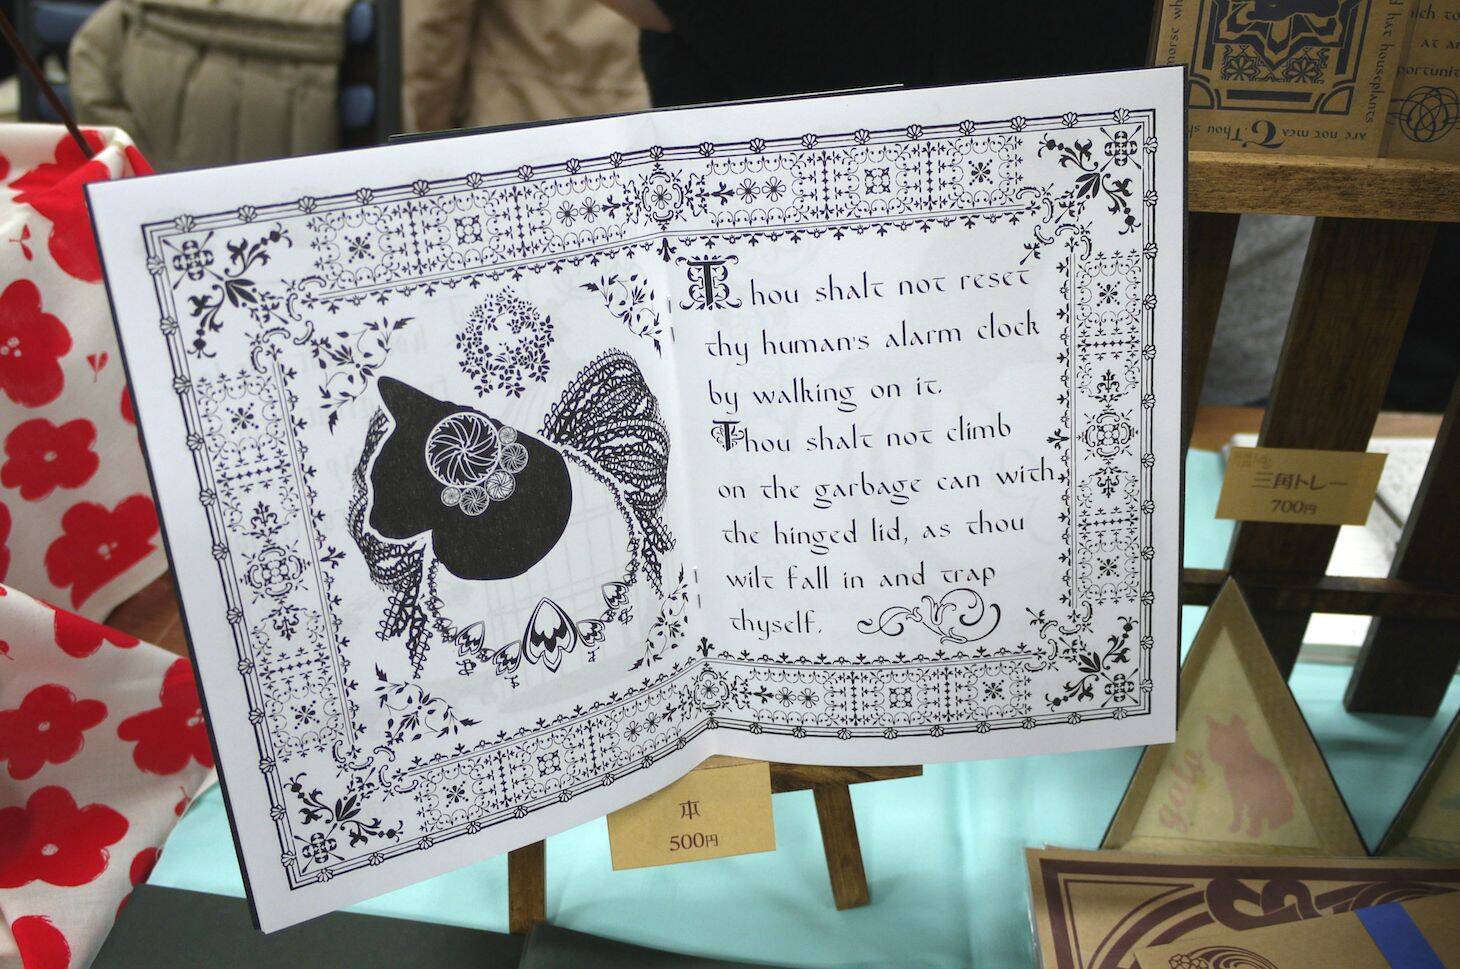 Thou shalt not reset
thy human's alarm clock
by walking on it.
Thou shalt not climb
on the garbage can with
the hinged lid, as thou
wilt fall in and trap
thyself.
本
500円
三角トレー
700円
gato
Thou sh
are not mea
that houseplants
orse wh
ich to
at an
portunit